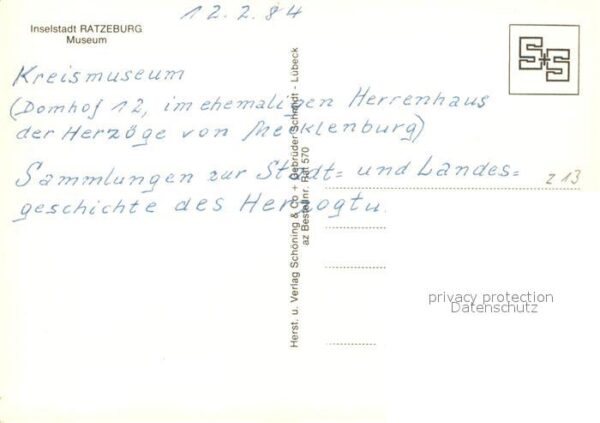 12.2.84
Inselstadt RATZEBURG
Museum
S+S
Kreismuseum
(Domhof 12, im ehemaligen Herrenhaus
der Herzöge von Mecklenburg)
Sammlungen zur Stadt= und Landes=
geschichte des Herzogtu
z 13
Herst. u. Verlag Schöning & Co + Gebrüder Schmidt - Lübeck
az Bestellnr. Rat 570
privacy protection
Datenschutz